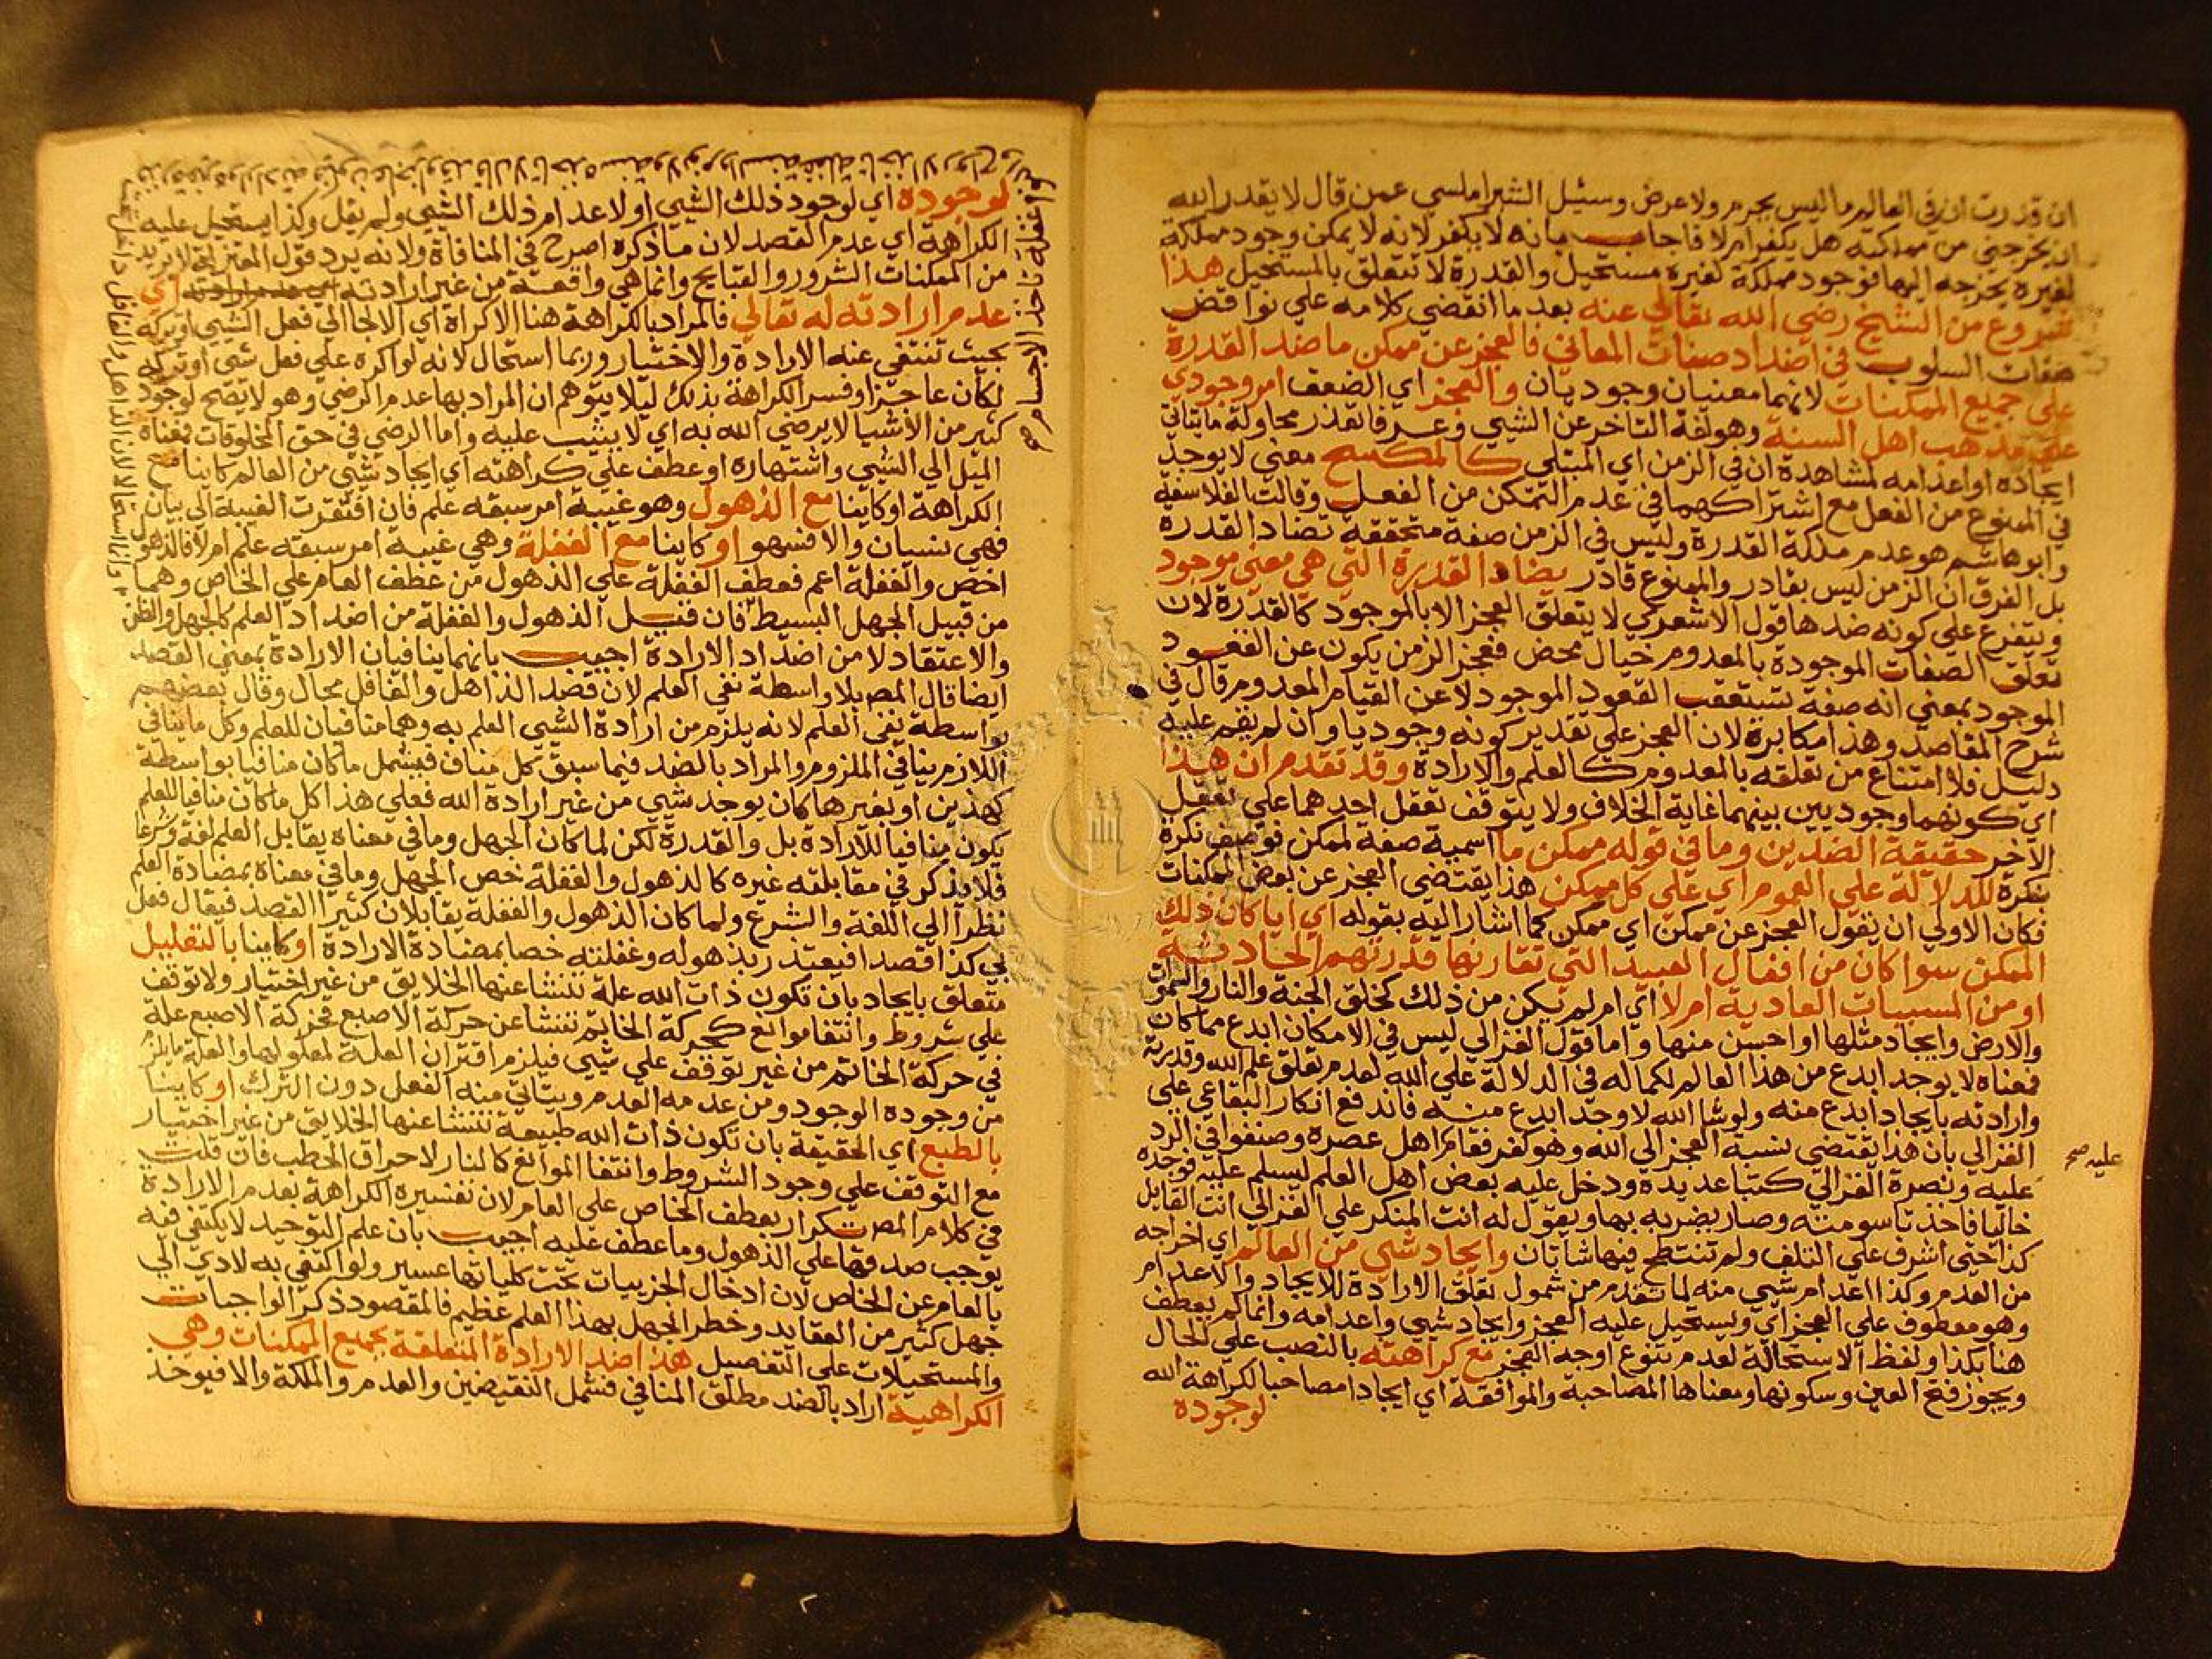 ان قدرت ان في العالم ما ليس بجرم ولا عرض وسئل الشبراملسي عمن قال لا يقدر الله
ان يخرجني من مملكته هل يكفر ام لا فاجاب بانه لا يكفر لانه لا يمكن وجود مملكة
لغيره يخرجه اليها فوجود مملكة لغيره مستحيل والقدرة لا تتعلق بالمستحيل هذا
شروع من الشيخ رضي الله تعالى عنه بعد ما انقضي كلامه علي نواقض
صفات السلوب في اضداد صفات المعاني فالعجز عن ممكن ما ضد القدرة
علي جميع الممكنات لانهما معنيان وجوديان والعجز اي الضعف امر وجودي
علي مذهب اهل السنة وهو لغة التاخر عن الشيي وعرفا تعذر محاولة ما يتاتي
ايجاده او اعدامه لمشاهدة ان في الزمن اي المبتلي كالمكسح معني لا يوجد
في الممنوع من الفعل مع اشتراكهما في عدم التمكن من الفعل وقالت الفلاسفة
وابو هاشم هو عدم ملكة القدرة وليس في الزمن صفة متحققة تضاد القدرة
بل الفرق ان الزمن ليس بقادر والممنوع قادر يضاد القدرة التي هي معني موجود
ويتفرع علي كونه ضدها قول الاشعري لا يتعلق العجز الا بالموجود كالقدرة لان
تعلق الصفات الموجودة بالمعدوم خيال محض فعجز الزمن يكون عن القعود
الموجود بمعني انه صفة تستعقب القعود الموجود لا عن القيام المعدوم قال في
شرح المقاصد وهذا مكابرة لان العجز علي تقدير كونه وجوديا وان لم يقم عليه
دليل فلا امتناع من تعلقه بالمعدوم كالعلم والارادة وقد تقدم ان هذا
اي كونهما وجوديين بينهما غاية الخلاف ولا يتوقف تعقل احدهما علي تعقل
الاخر حقيقة الضدين وما في قوله ممكن ما اسمية صفة لممكن فوصف نكرة
بنكرة للدلالة علي العموم اي علي كل ممكن هذا يقتضي العجز عن بعض الممكنات
فكان الاولي ان يقول العجز عن ممكن اي ممكن كما اشار اليه بقوله اي ايا كان ذلك
الممكن سوا كان من افعال العبيد التي تقارنها قدرتهم الحادثة
او من المسببات العادية ام لا اي ام لم يكن من ذلك كخلق الجنة والنار والسموات
والارض وايجاد مثلها او احسن منها واما قول الغزالي ليس في الامكان ابدع مما كان
فمعناه لا يوجد ابدع من هذا العالم لكماله في الدلالة علي الله لعدم تعلق علم الله وقدرته
وارادته بايجاد ابدع منه ولو شا الله لاوجد ابدع منه فاندفع انكار البقاعي علي
الغزالي بان هذا يقتضي نسبة العجز الي الله وهو كفر فقام اهل عصره وصنفوا في الرد
عليه ونصرة الغزالي كتبا عديدة ودخل عليه بعض اهل العلم ليسلم عليه فوجده
عليه صح
خاليا فاخذ تاسومته وصار يضربه بها ويقول له انت المنكر علي الغزالي انت القايل
كذا حتي اشرف علي التلف ولم تنتطح فيها شاتان وايجاد شي من العالم اي اخراجه
من العدم وكذا اعدام شيي منه لما تقدم من شمول تعلق الارادة للايجاد والاعدام
وهو معطوف علي العجز اي ويستحيل عليه العجز وايجاد شيي واعدامه وانما لم يعطف
هنا بكذا ولفظ الاستحالة لعدم تنوع اوجه العجز مع كراهته بالنصب علي الحال
ويجوز فتح العين وسكونها ومعناها المصاحبة والموافقة اي ايجادا مصاحبا لكراهة الله
لوجوده
لوجوده اي لوجود ذلك الشيي او لاعدام ذلك الشيي ولم يقل وكذا يستحيل عليه
الكراهة اي عدم القصد لان ما ذكره اصرح في المنافاة ولانه يرد قول المعتزلة لا يريد
من الممكنات الشرور والقبايح وانما هي واقعة من غير ارادته اي
عدم ارادته له تعالي فالمراد بالكراهة هنا الاكراه اي الالجا الي فعل الشيي او تركه
بحيث تنتفي عنه الارادة والاختيار وربما استحال لانه لو اكره علي فعل شيي او تركه
لكان عاجزا وفسر الكراهة بذلك ليلا يتوهم ان المراد بها عدم الرضي وهو لا يصح لوجود
كثير من الاشيا لا يرضي الله به اي لا يثيب عليه واما الرضي في حق المخلوقات فمعناه
الميل الي الشيي واشتهاره او عطف علي كراهته اي ايجاد شيي من العالم كاينا مع
الكراهة او كاينا مع الذهول وهو غيبة امر سبقه علم فان افتقرت الغيبة الي بيان
فهي نسيان والا فسهو او كاينا مع الغفلة وهي غيبة امر سبقه علم ام لا فالذهول
اخص والغفلة اعم فعطف الغفلة علي الذهول من عطف العام علي الخاص وهما
من قبيل الجهل البسيط فان قيل الذهول والغفلة من اضداد العلم كالجهل والظن
والاعتقاد لا من اضداد الارادة اجيب بانهما ينافيان الارادة بمعني القصد
ايضا قال المص بلا واسطة نفي العلم لان قصد الذاهل والغافل محال وقال بعضهم
بواسطة نفي العلم لانه يلزم من ارادة الشيي العلم به وهما منافيان للعلم وكل ما ينافي
اللازم ينافي الملزوم والمراد بالضد فيما سبق كل مناف فيشمل ما كان منافيا بواسطة
كهذين او بغيرها كان يوجد شيي من غير ارادة الله فعلي هذا كل ما كان منافيا للعلم
يكون منافيا للارادة بل والقدرة لكن لما كان الجهل وما في معناه يقابل العلم لغة وشرعا
فلا يذكر في مقابلته غيره كالذهول والغفلة خص الجهل وما في معناه بمضادة العلم
نظرا الي اللغة والشرع ولما كان الذهول والغفلة يقابلان كثيرا القصد فيقال فعل
بي كذا قصدا فيعتذر بذهوله وغفلته خصا بمضادة الارادة او كاينا بالتعليل
متعلق بايجاد بان تكون ذات الله علة تنشا عنها الخلايق من غير اختيار ولا توقف
علي شروط وانتفا موانع كحركة الخاتم تنشا عن حركة الاصبع فحركة الاصبع علة
في حركة الخاتم من غير توقف علي شيي فيلزم اقتران العلة لمعلولها والعلة ما يلزم
من وجوده الوجود ومن عدمه العدم ويتاتي منه الفعل دون الترك او كاينا
بالطبع اي الحقيقة بان تكون ذات الله طبيعة تنشا عنها الخلايق من غير اختيار
مع التوقف علي وجود الشروط وانتفا الموانع كالنار لاحراق الحطب فان قلت
في كلام المص تكرار بعطف الخاص علي العام لان تفسيره الكراهة بعدم الارادة
يوجب صدقها علي الذهول وما عطف عليه اجيب بان علم التوحيد لا يكتفي فيه
بالعام عن الخاص لان ادخال الجزييات تحت كلياتها عسير ولو اكتفي به لادي الي
جهل كثير من العقايد وخطر الجهل بهذا العلم عظيم فالمقصود ذكر الواجبات
والمستحيلات علي التفصيل هذا ضد الارادة المتعلقة بجميع الممكنات وهي
الكراهية اراد بالضد مطلق المنافي فشمل النقيضين والعدم والملكة والا فيوخذ